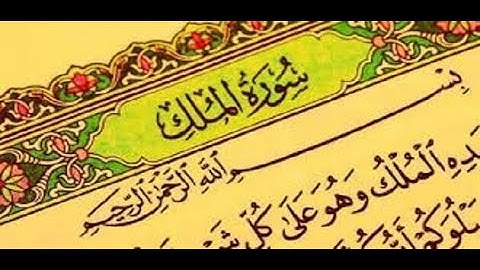 سُورَةُ الْمُلْكِ
بِسْمِ اللَّهِ الرَّحْمَٰنِ الرَّحِيمِ
الْمُلْكُ وَهُوَ عَلَىٰ كُلِّ